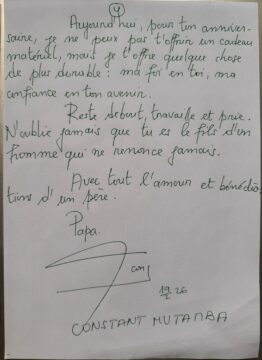 4
Aujourd'hui, pour ton anniver-
saire, je ne peux pas t'offrir un cadeau
matériel, mais je t'offre quelque chose
de plus durable : ma foi en toi, ma
confiance en ton avenir.
Reste debout, travaille et prie.
N'oublie jamais que tu es le fils d'un
homme qui ne renonce jamais.
Avec tout l'amour et bénédic
tions d'un père.
Papa.
26
CONSTANT MUTAMBA